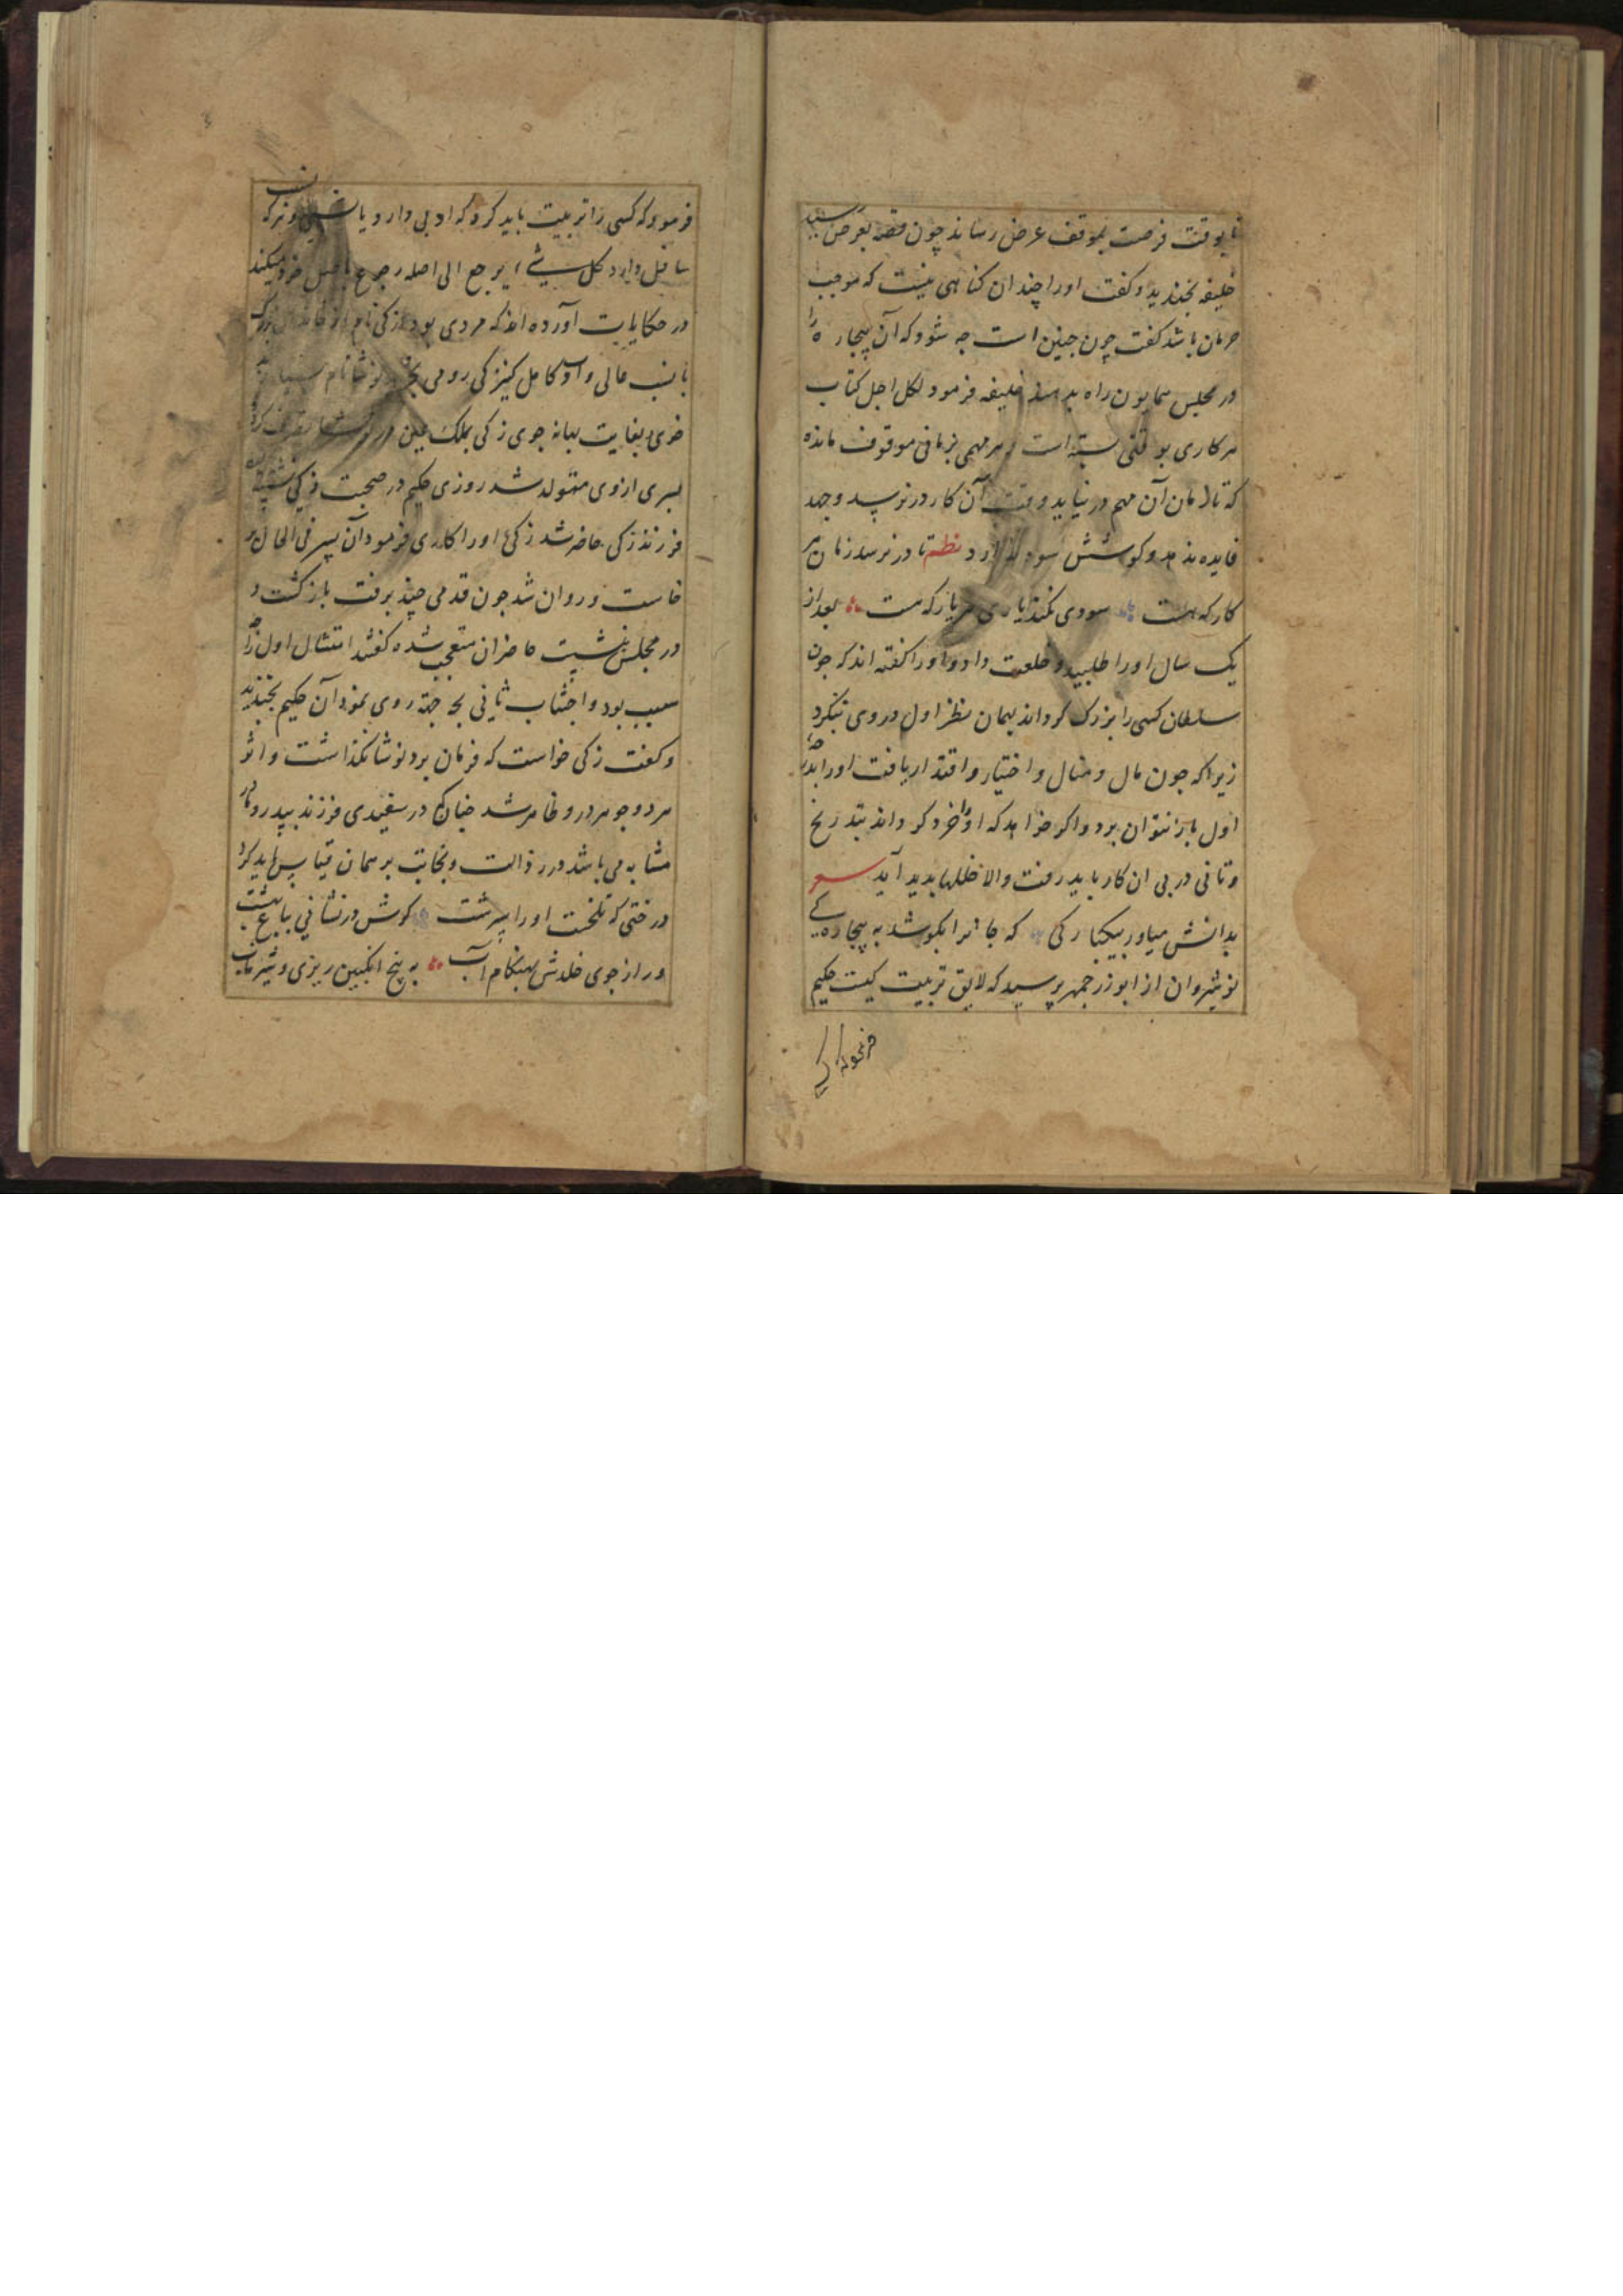 تا بوقت فرصت بموقف عرض رساند چون قصه بعرض رسید
خلیفه بخندید و کفت اورا چندان کناهی نیست که موجب
حرمان باشد کفت چون چنین است چه شود که آن بیچاره را
در مجلس همایون راه بدهند خلیفه فرمود لکل اجل کتاب
هر کاری بوقتی بسته است و هر مهمی بزمانی موقوف مانده
که تا زمان آن مهم در نیاید و وقت آن کار در نرسد وجهد
فایده ندهد و کوشش سود ندارد نظم تا در نرسد زمان هر
کار که هست سودی نکند یاری هر یار که هست بعد از
یک سال اورا طلبید و خلعت داد و اورا کفته اند که چون
سلطان کسی را بزرک کرداند بهمان نظر اول در وی ننکرد
زیرا که چون مال و منال و اختیار و اقتدار یافت اورا
اول باز نتوان برد و اکر خواهد که اورا خرد کرداند بتدریج
و تانی در پی ان کار باید رفت والا خللها پدید آید
بدانش میاور بیکبارکی که جانرا بکوشد به بیچارکی
نوشیروان از ابوزرجمهر پرسید که لایق تربیت کیست حکیم
فرمود که کسی را تربیت باید کرد که ادبی دارد یا نسبی
دارد کل شیئ یرجع الی اصله رجوع باصل خود میکند
در حکایات آورده اند که مردی بود زکی نام از
با نسب عالی و ادب کامل کنیزکی رومی نوشا نام
خوی بغایت بهانه جوی زکی بملک یمین در نوشا تصرف کرد
پسری ازوی متولد شد روزی حکیم در صحبت زکی نشسته
فرزند زکی حاضر شد زکی اورا کاری فرمود آن پسر فی الحال بر
خاست و روان شد چون قدمی چند برفت بازکشت و
در مجلس بنشست حاضران متعجب شده کفتند امتثال اول را چه
سبب بود و اجتناب ثانی بچه جهة روی نمود آن حکیم بخندید
و کفت زکی خواست که فرمان برد نوشا نکذاشت و اثر
هر دو جوهر در و ظاهر شد چنانکه در سفیدی فرزند بپدر و مادر
مشابه می باشد در رذالت و نجابت بر همان قیاس باید کرد
درختی که تلخست اورا سرشت کرش در نشانی بباغ بهشت
ور از جوی خلدش بهنکام آب به بیخ انکبین ریزی و شیر ناب